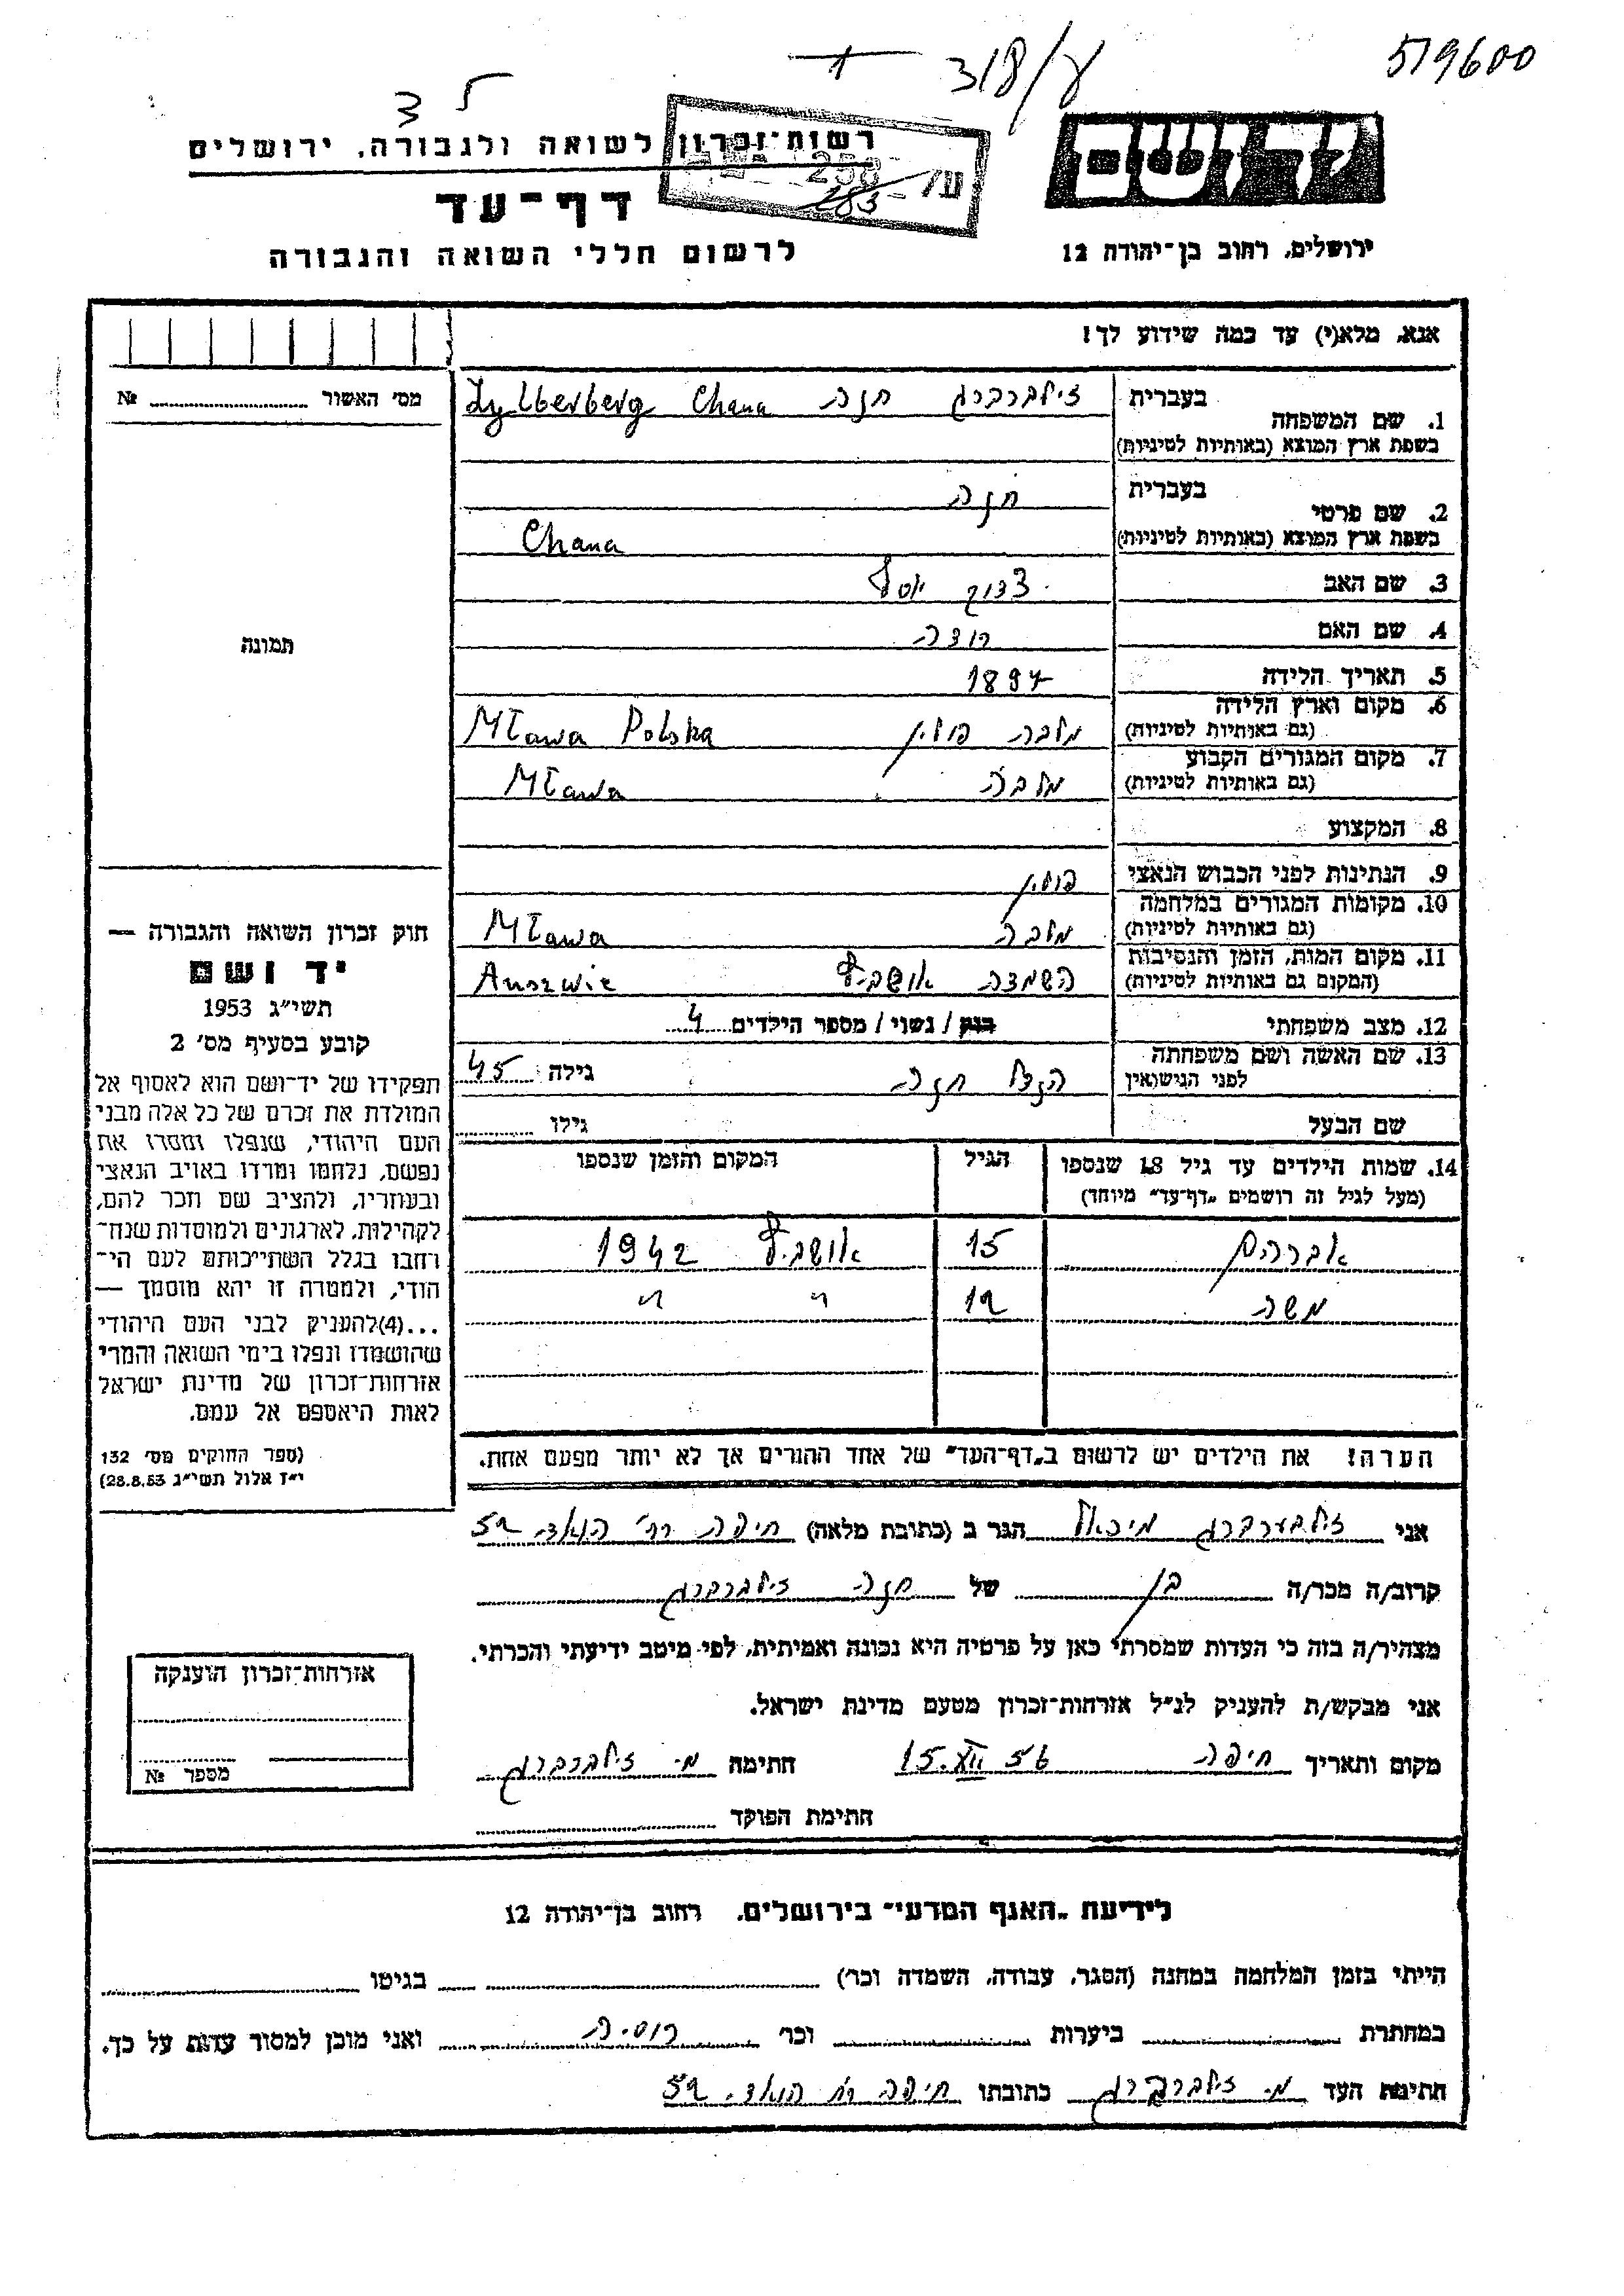 519600
318/ע
ל צ
יד ושם
רשות־זכרון לשואה ולגבורה, ירושלים
ע/ 258
183
דף־עד
ירושלים, רחוב בן־יהודה 12
לרשום חללי השואה והגבורה
אנא, מלא(י) עד כמה שידוע לך!
מס' האשור № 
1. שם המשפחה
בעברית זילברברג חנה Zylberberg Chana
בשפת ארץ המוצא (באותיות לטיניות)
2. שם פרטי
בעברית חנה
בשפת ארץ המוצא (באותיות לטיניות) Chana
3. שם האב צדוק יוסף
4. שם האם
5. תאריך הלידה 1897
6. מקום וארץ הלידה
(גם באותיות לטיניות) מלבה פולין Mława Polska
7. מקום המגורים הקבוע
(גם באותיות לטיניות) מלבה Mława
8. המקצוע
9. הנתינות לפני הכבוש הנאצי פולין
10. מקומות המגורים במלחמה
(גם באותיות לטיניות) מלבה Mława
11. מקום המות, הזמן והנסיבות
(המקום גם באותיות לטיניות) השמדה אושביץ Auszwic
12. מצב משפחתי רווק / נשוי / מספר הילדים 4
13. שם האשה ושם משפחתה
לפני הנישואין חנה גילה 45
שם הבעל גילו
תמונה
חוק זכרון השואה והגבורה —
יד ושם
תשי״ג 1953
קובע בסעיף מס' 2
תפקידו של יד־ושם הוא לאסוף אל
המולדת את זכרם של כל אלה מבני
העם היהודי, שנפלו ומסרו את
נפשם, נלחמו ומרדו באויב הנאצי
ובעוזריו, ולהציב שם וזכר להם,
לקהילות, לארגונים ולמוסדות שנח־
רבו בגלל השתייכותם לעם הי־
הודי, ולמטרה זו יהא מוסמך —
...(4)להעניק לבני העם היהודי
שהושמדו ונפלו בימי השואה והמרי
אזרחות־זכרון של מדינת ישראל
לאות היאספם אל עמם.
(ספר החוקים מס' 132
י״ז אלול תשי״ג 28.8.53)
14. שמות הילדים עד גיל 18 שנספו הגיל המקום והזמן שנספו
(מעל לגיל זה רושמים „דף־עד״ מיוחד)
אברהם 15 אושביץ 1942
משה 12 " "
הערה! את הילדים יש לרשום ב„דף־העד״ של אחד ההורים אך לא יותר מפעם אחת.
אני זילברברג מיכאל הגר ב (כתובת מלאה) חיפה רח' 52
קרוב/ה מכר/ה בן של חנה זילברברג
מצהיר/ה בזה כי העדות שמסרתי כאן על פרטיה היא נכונה ואמיתית, לפי מיטב ידיעתי והכרתי.
אני מבקש/ת להעניק לנ״ל אזרחות־זכרון מטעם מדינת ישראל.
מקום ותאריך חיפה 15.XII 56 חתימה מ. זילברברג
חתימת הפוקד
אזרחות־זכרון הוענקה
מספר №
לידיעת „האגף המדעי״ בירושלים, רחוב בן־יהודה 12
הייתי בזמן המלחמה במחנה (הסגר, עבודה, השמדה וכו') בגיטו
במחתרת ביערות וכו' רוסיה ואני מוכן למסור עדות על כך.
חתימת העד מ. זילברברג כתובתו חיפה רח' 52